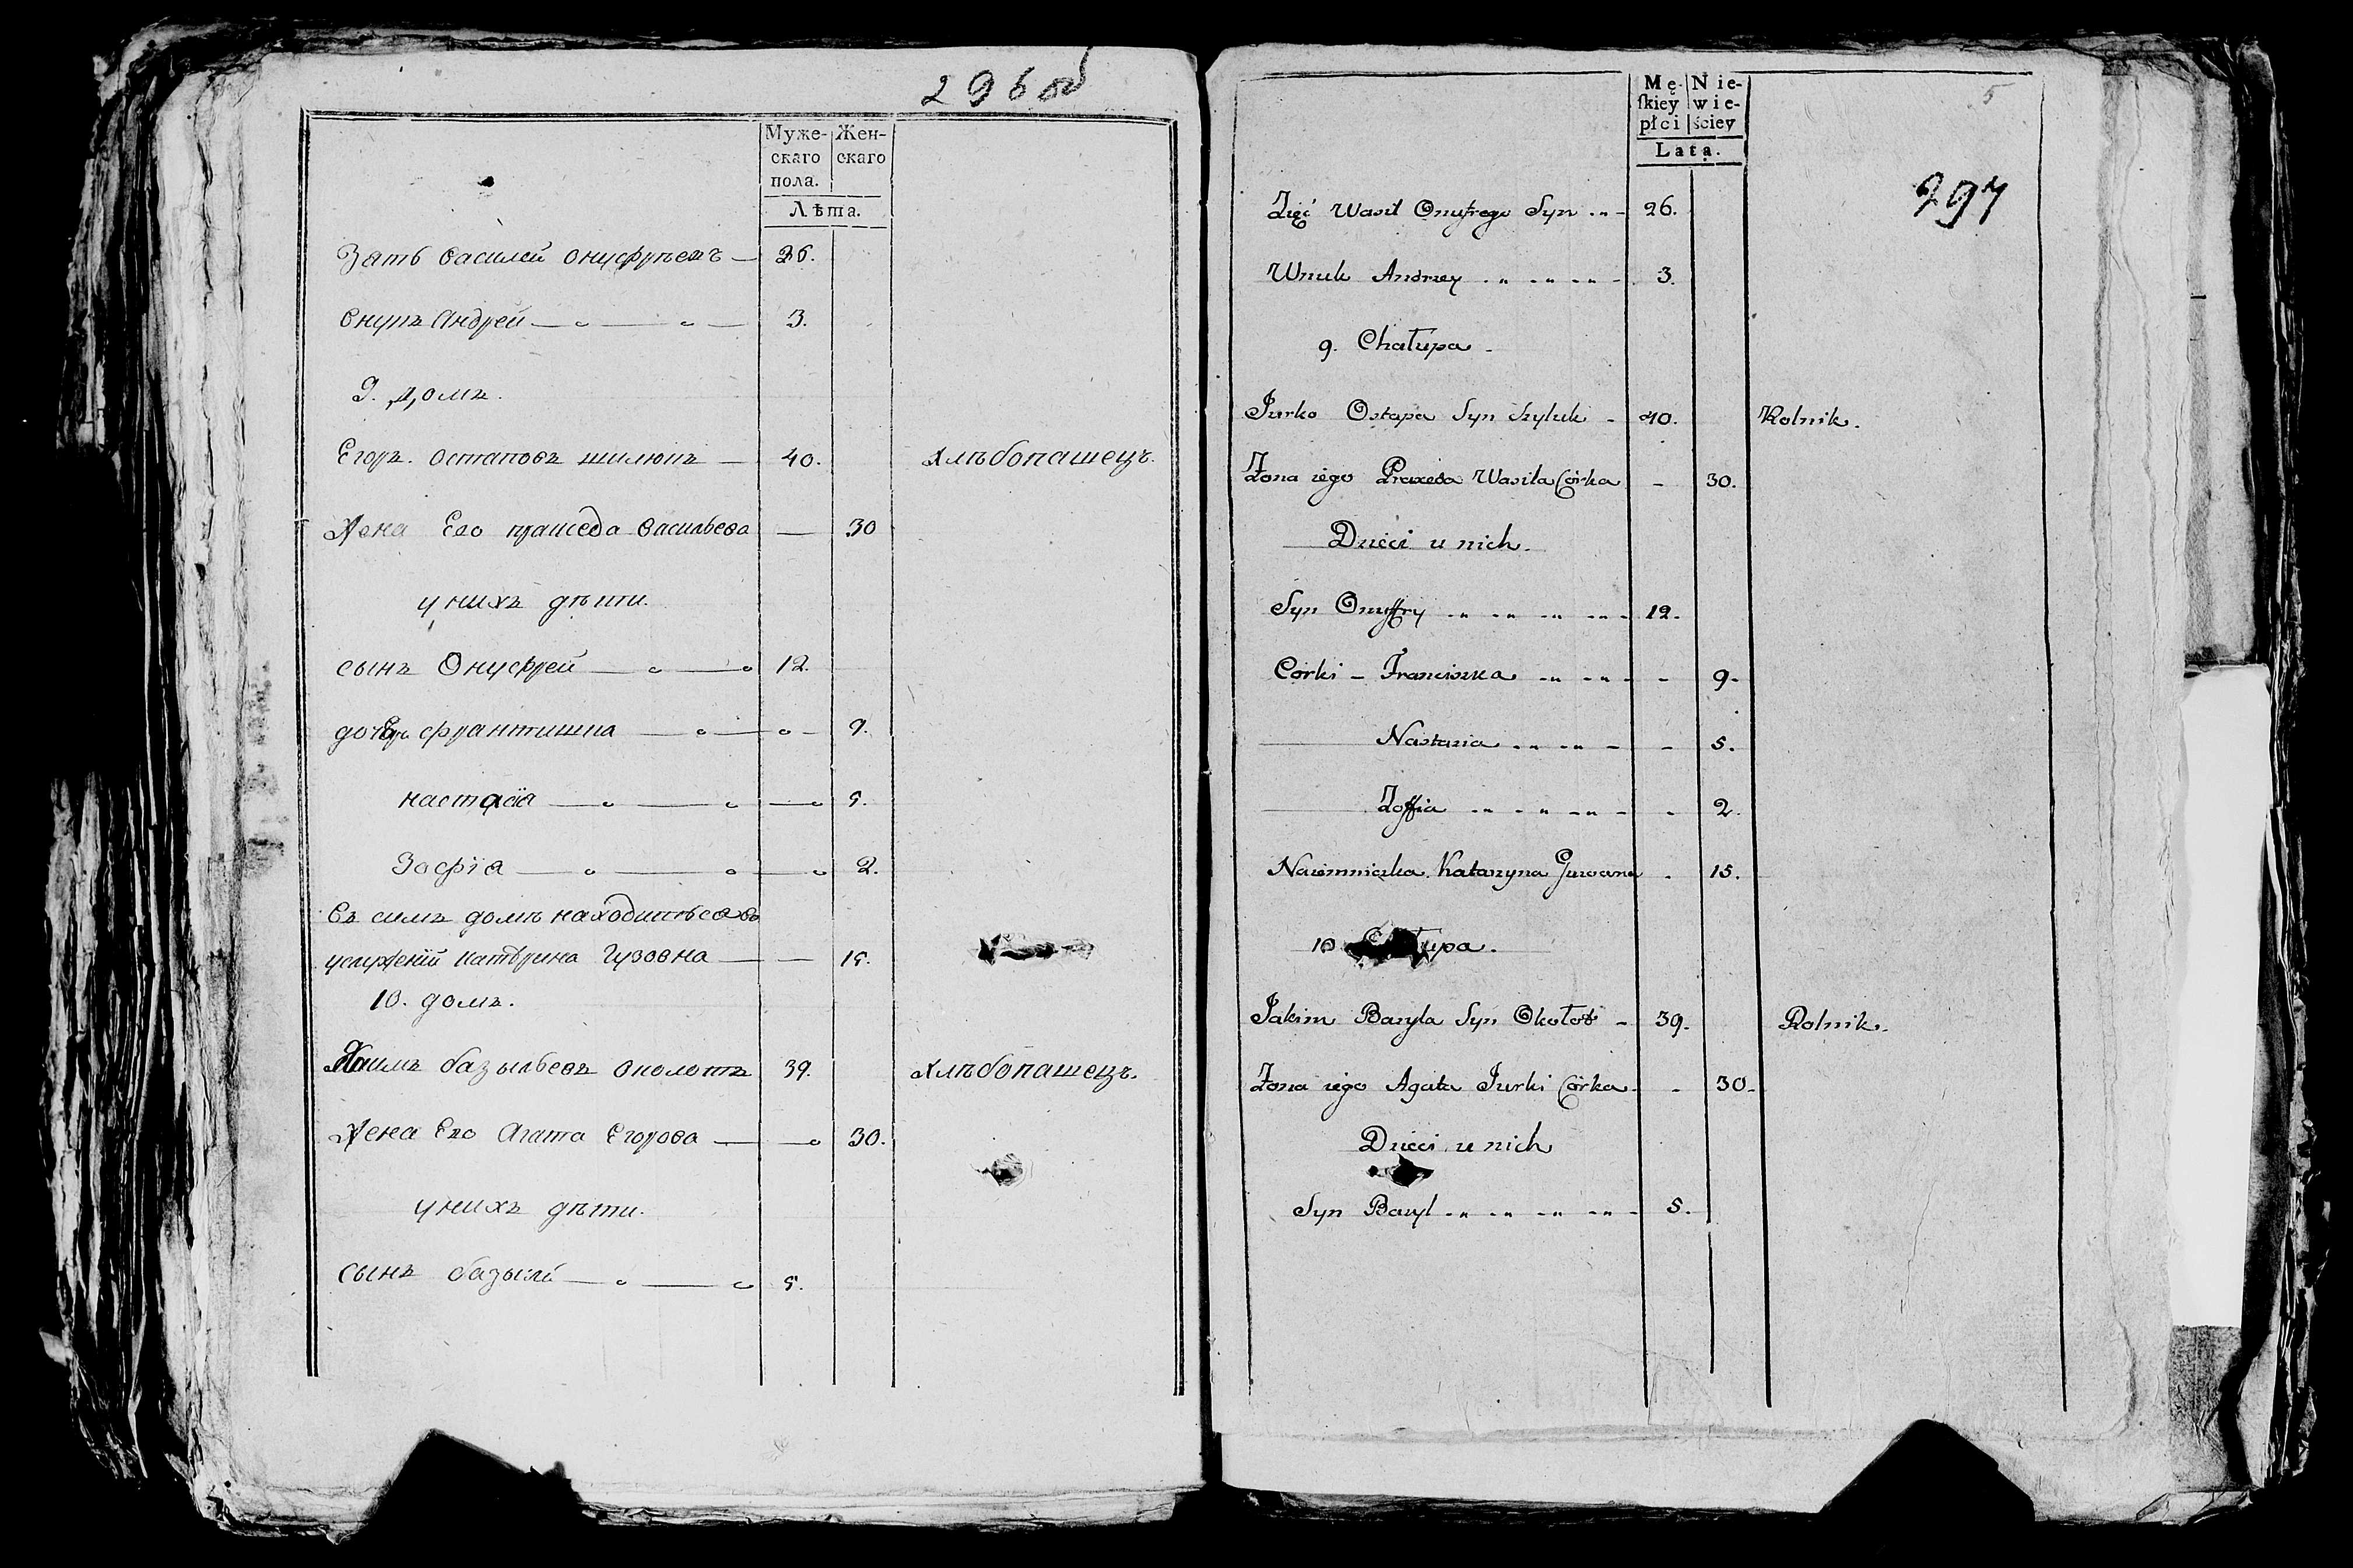 296 об
Муже-скаго пола. Жен-скаго
Лѣта.
Зять василей онуфрѣевъ — 26.
внукъ Андрей — 3.
9. домъ.
Егоръ остаповъ шилюкъ — 40. хлѣбопашецъ.
Жена Его праксeда васильева — 30
у нихъ дѣти.
сынъ Онуфрей — 12.
дочери франтишка — 9.
настасїя — 5.
Зофїя — 2.
въ семъ домѣ находитьса во
услуженїй катерина Гузовна — 15.
10. домъ.
Якимъ базылѣевъ околотъ 39. хлѣбопашецъ.
Жена Его Агата Егорова — 30.
у нихъ дѣти.
сынъ базылї — 5.
5
297
Mę-ſkiey płci Nie-wie-ściey
Lata.
Zięć Wasil Onufrego Syn 26.
Wnuk Andrzey 3.
9. Chałupa
Jurko Ostapa Syn Szyluk - 40. Rolnik.
Żona iego Praxeda Wasila Córka - 30.
Dzieci u nich.
Syn Onuffry 12.
Córki - Franciszka - 9.
Nastazia - 5.
Zoffia - 2.
Naiemniczka Katarzyna Guzowna 15.
10 Chałupa.
Jakim Bazyla Syn Okołot - 39. Rolnik.
Żona iego Agata Jurki Córka - 30.
Dzieci u nich
Syn Bazyl 5.